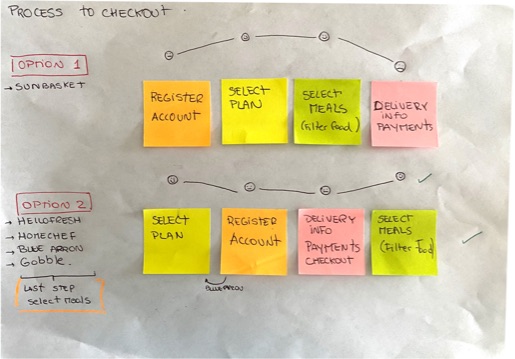 PROCESS TO CHECKOUT.
OPTION 1
→ SUNBASKET
REGISTER
ACCOUNT
SELECT
PLAN
SELECT
MEALS
(Filter Food)
DELIVERY
INFO
PAYMENTS
OPTION 2
→ HELLOFRESH
→ HOMECHEF
→ BLUE APRON
→ Gobble.
LAST STEP
select Meals
SELECT
PLAN
REGISTER
ACCOUNT
DELIVERY
INFO
PAYMENTS
CHECKOUT
SELECT
MEALS
(Filter Food)
BLUEAPRON